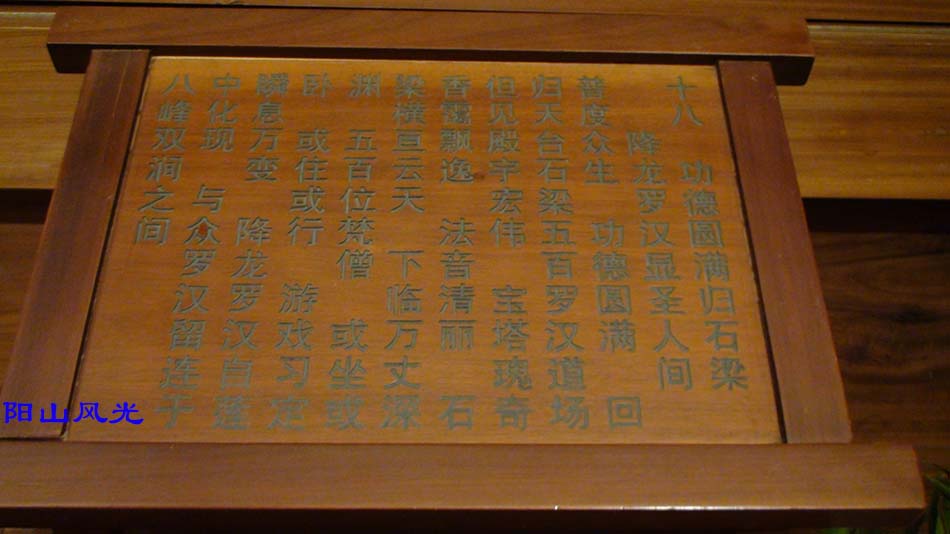 十八 功德圆满归石梁
降龙罗汉显圣人间
普度众生 功德圆满 回
归天台石梁五百罗汉道场
但见殿宇宏伟 宝塔瑰奇
香霭飘逸 法音清丽 石
梁横亘云天 下临万丈深
渊 五百位梵僧 或坐或
卧 或住或行 游戏习定
瞬息万变 降龙罗汉自莲
中化现 与众罗汉留连于
八峰双涧之间
阳山风光